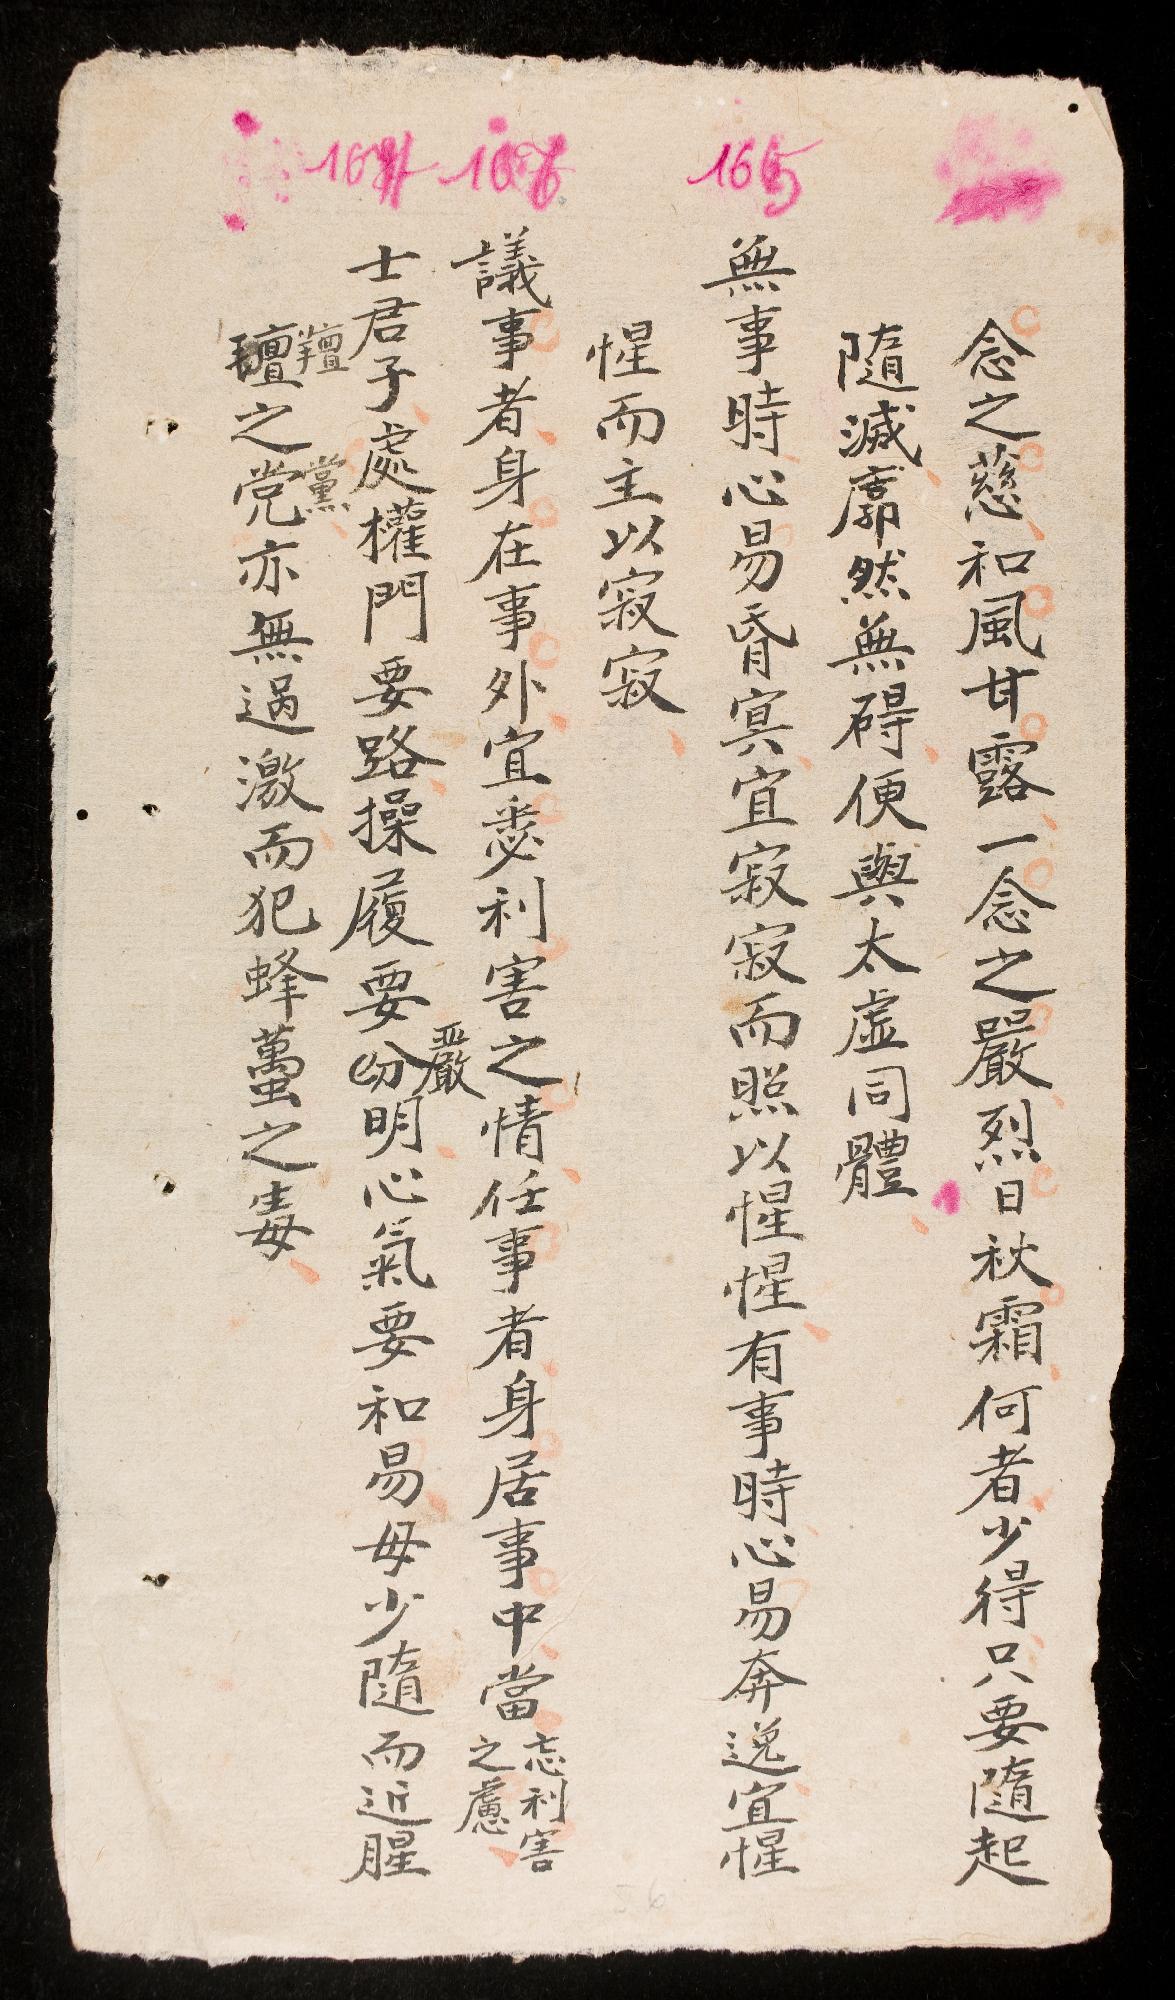 念之慈和風甘露一念之嚴烈日秋霜何者少得只要隨起
隨滅廓然無碍便與太虛同體
165
無事時心易昏冥宜寂寂而照以惺惺有事時心易奔逸宜惺
惺而主以寂寂
166
議事者身在事外宜悉利害之情任事者身居事中當忘利害
之慮
士君子處權門要路操履要
嚴
明心氣要和易毋少隨而近腥
羶
之党
黨
亦無過激而犯蜂蠆之毒